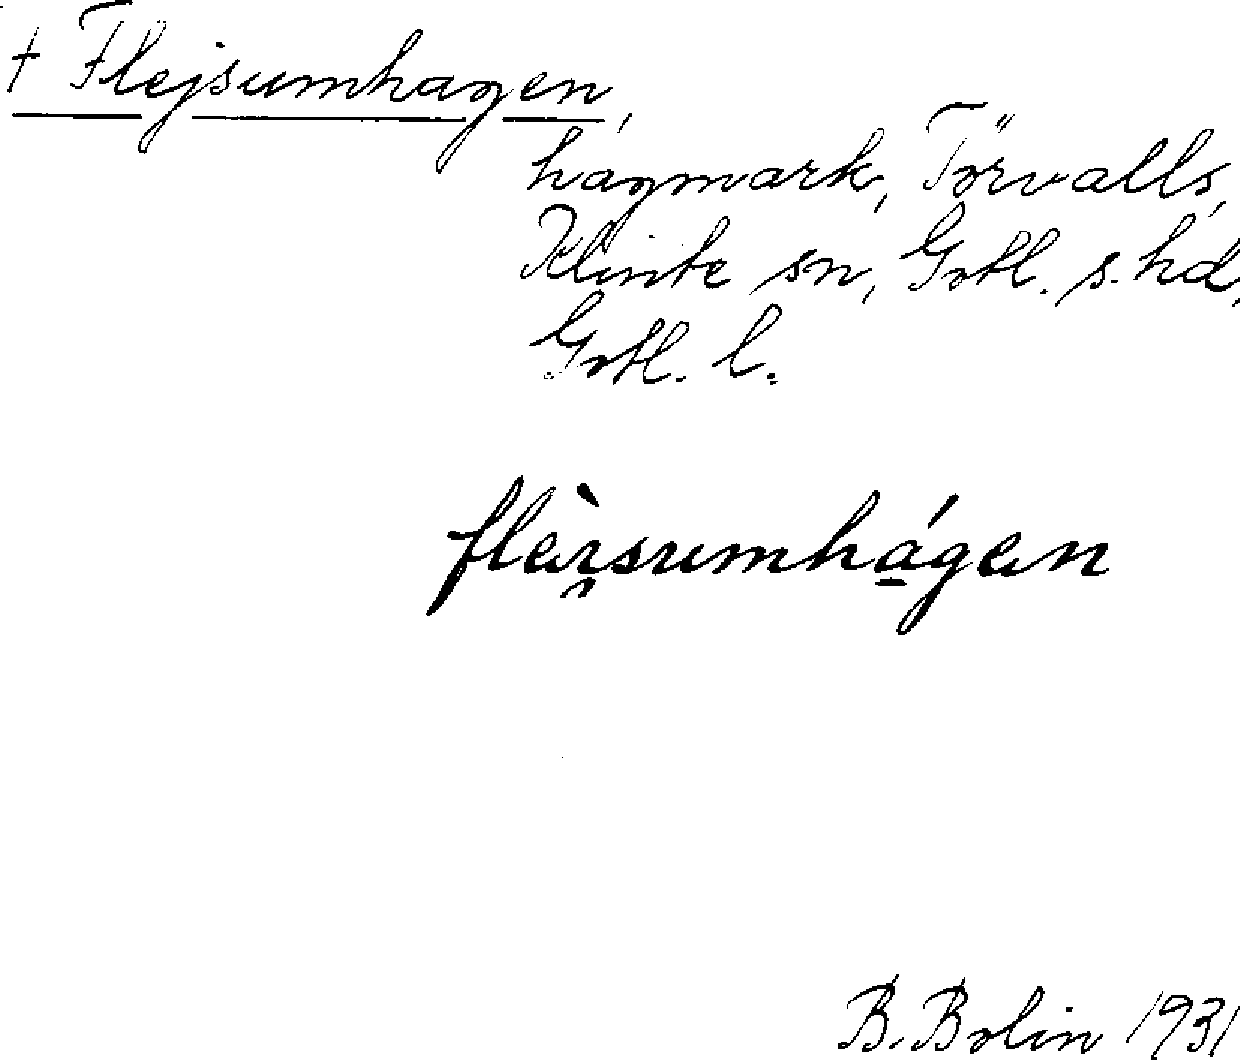 † Flejsumhagen,
hagmark, Törvalls,
Klinte sn, Gotl. s. hd,
Gotl. l.
fleìsumhágen
B. Bolin 1931